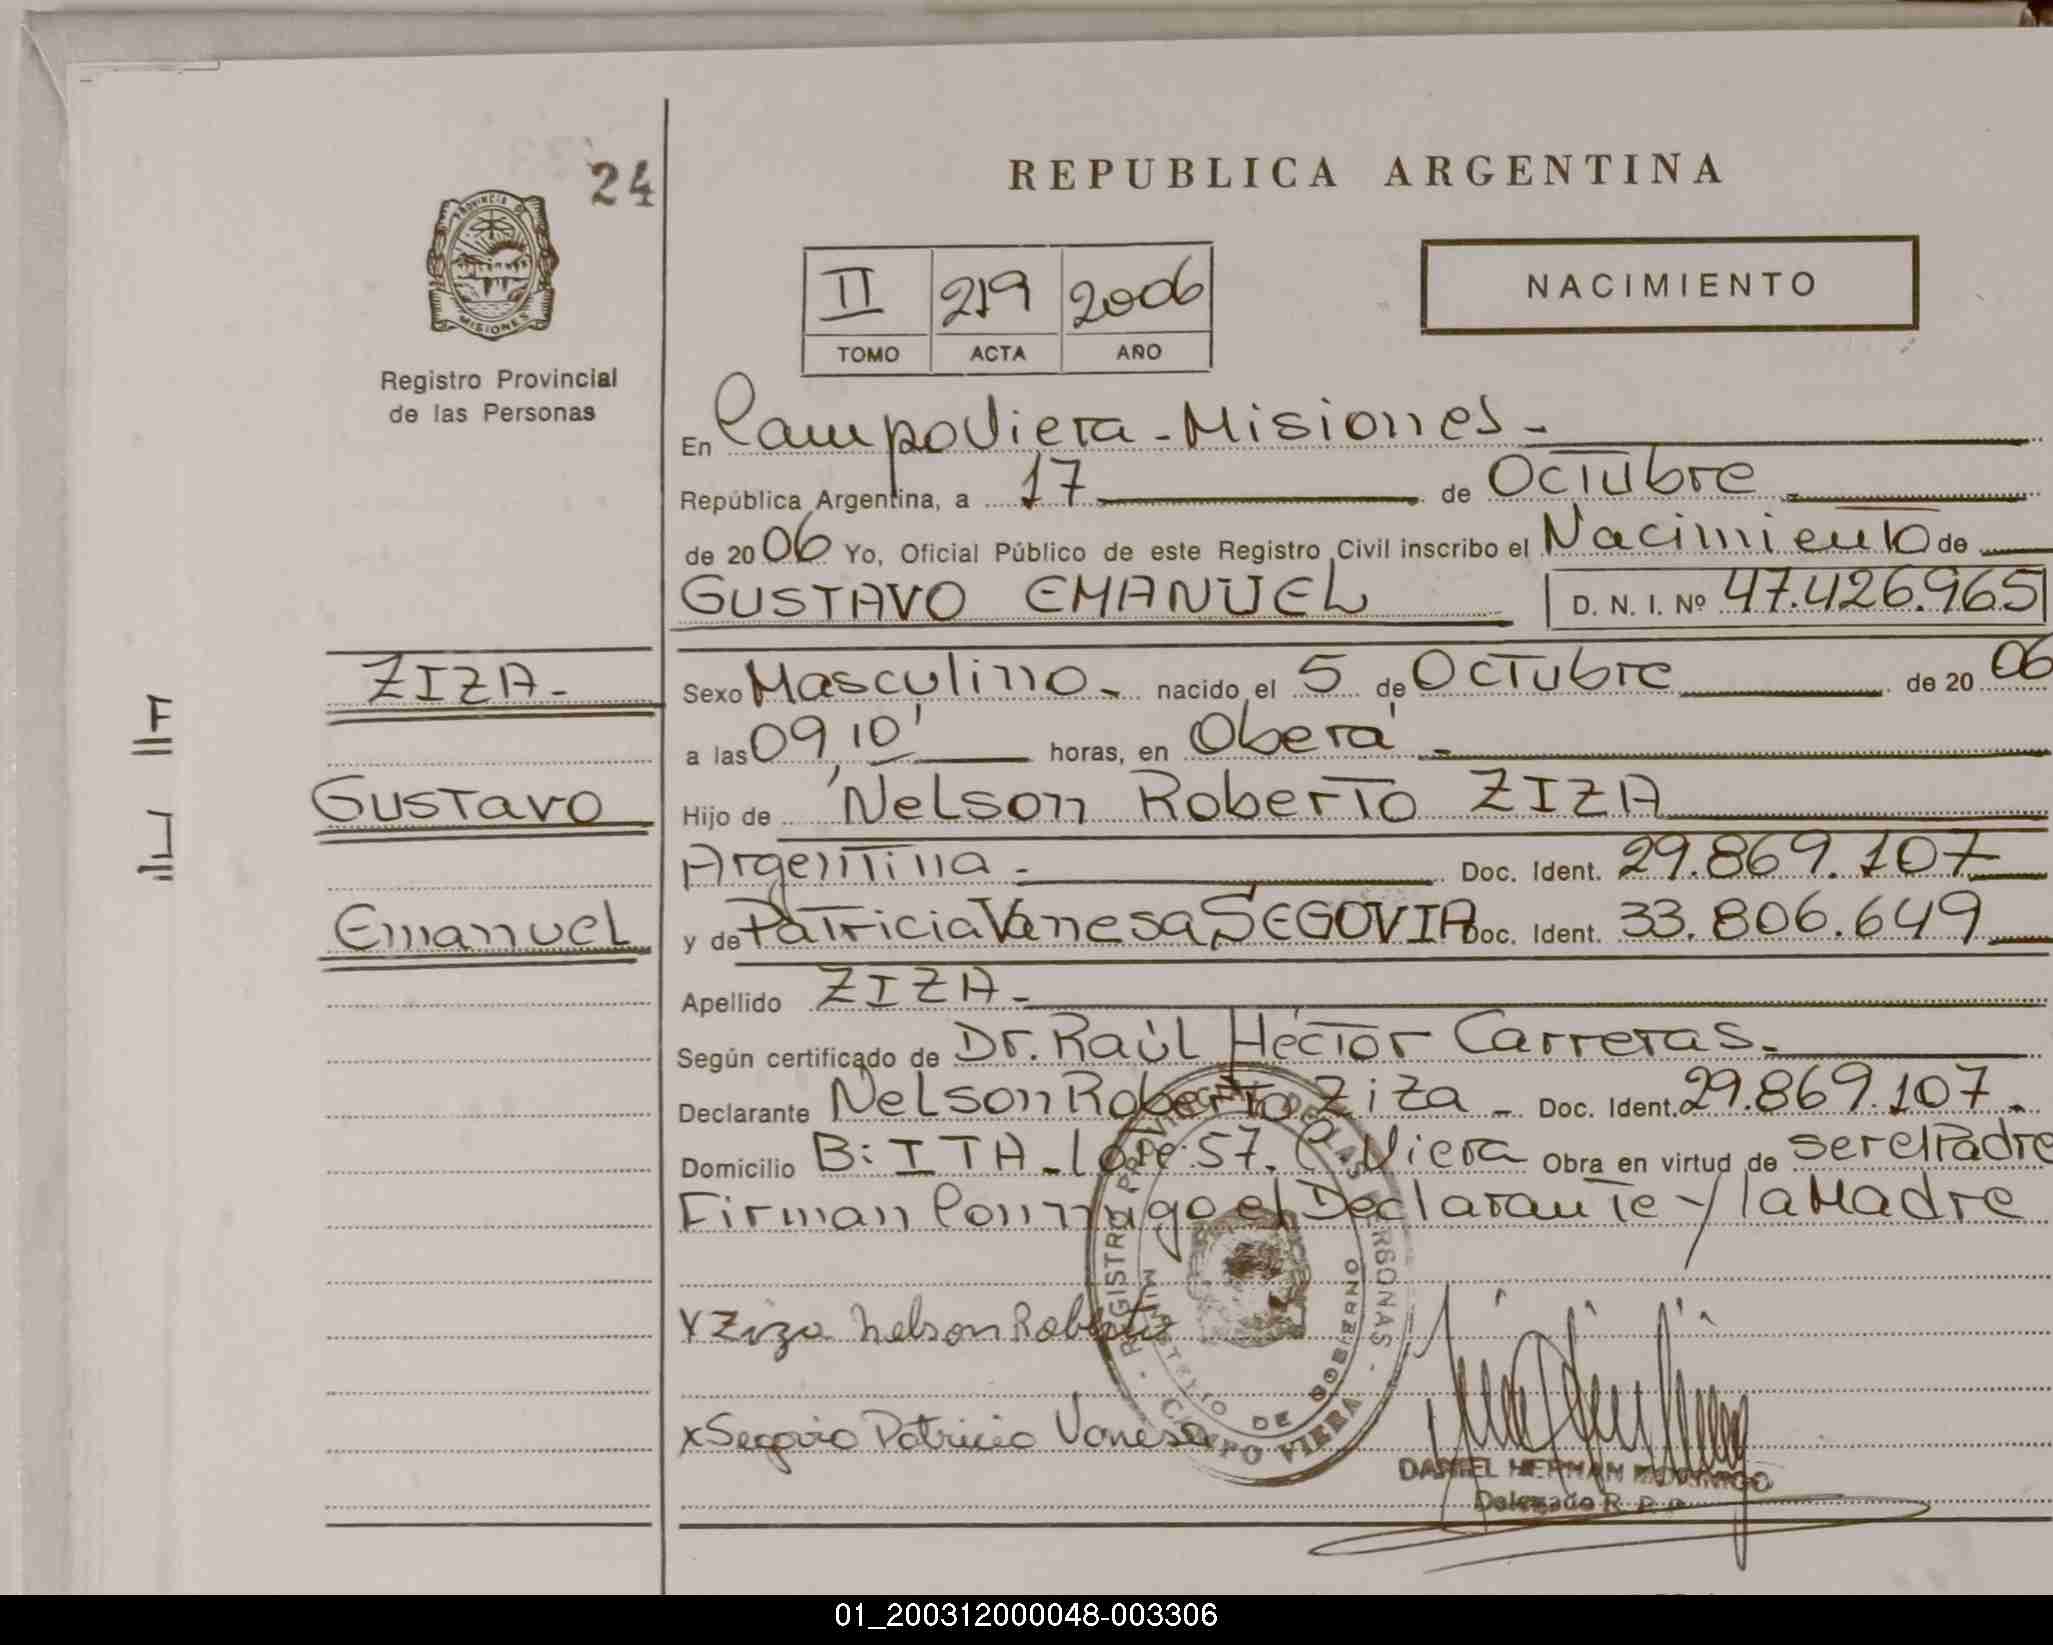 24
REPUBLICA ARGENTINA
PROVINCIA DE
MISIONES
Registro Provincial
de las Personas
II 219 2006
TOMO ACTA AÑO
NACIMIENTO
En Campo Viera - Misiones -
República Argentina, a 17 de Octubre
de 2006 Yo, Oficial Público de este Registro Civil inscribo el Nacimiento de
GUSTAVO EMANUEL D. N. I. Nº 47.426.965
ZIZA-
Gustavo
Emanuel
Sexo Masculino - nacido el 5 de Octubre de 2006
a las 09,10' horas, en Oberá -
Hijo de Nelson Roberto ZIZA
Argentina - Doc. Ident. 29.869.107
y de Patricia Vanesa SEGOVIA Doc. Ident. 33.806.649
Apellido ZIZA -
Según certificado de Dr. Raúl Héctor Carreras -
Declarante Nelson Roberto Ziza - Doc. Ident. 29.869.107.
Domicilio B: ITA - Lote 57. C. Viera Obra en virtud de ser el Padre
Firman Conmigo el Declarante y la Madre
REGISTRO PROVINCIAL DE LAS PERSONAS - CAMPO VIERA -
MINISTERIO DE GOBIERNO
x Ziza Nelson Roberto
x Segovia Patricia Vanesa
DANIEL HERNAN
Delegado R. P. P.
01_200312000048-003306